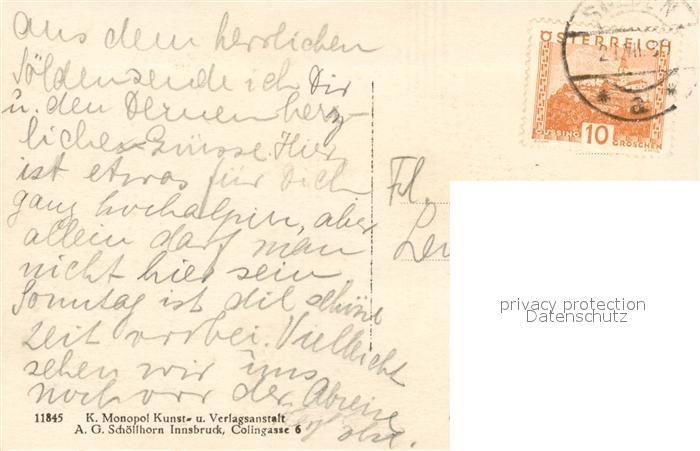 Aus dem herrlichen
Sölden sende ich Dir
u. den Deinen herz-
liche Grüsse. Hier
ist etwas für Dich
ganz hochalpin, aber
allein darf man
nicht hier sein
Sonntag ist die schöne
Zeit vorbei. Vielleicht
sehen wir uns
noch vor der Abreise
11845 K. Monopol Kunst- u. Verlagsanstalt
A. G. Schöllhorn Innsbruck, Colingasse 6
SÖLDEN
ÖSTERREICH
GÜSSING 10 GROSCHEN
Frl.
privacy protection
Datenschutz